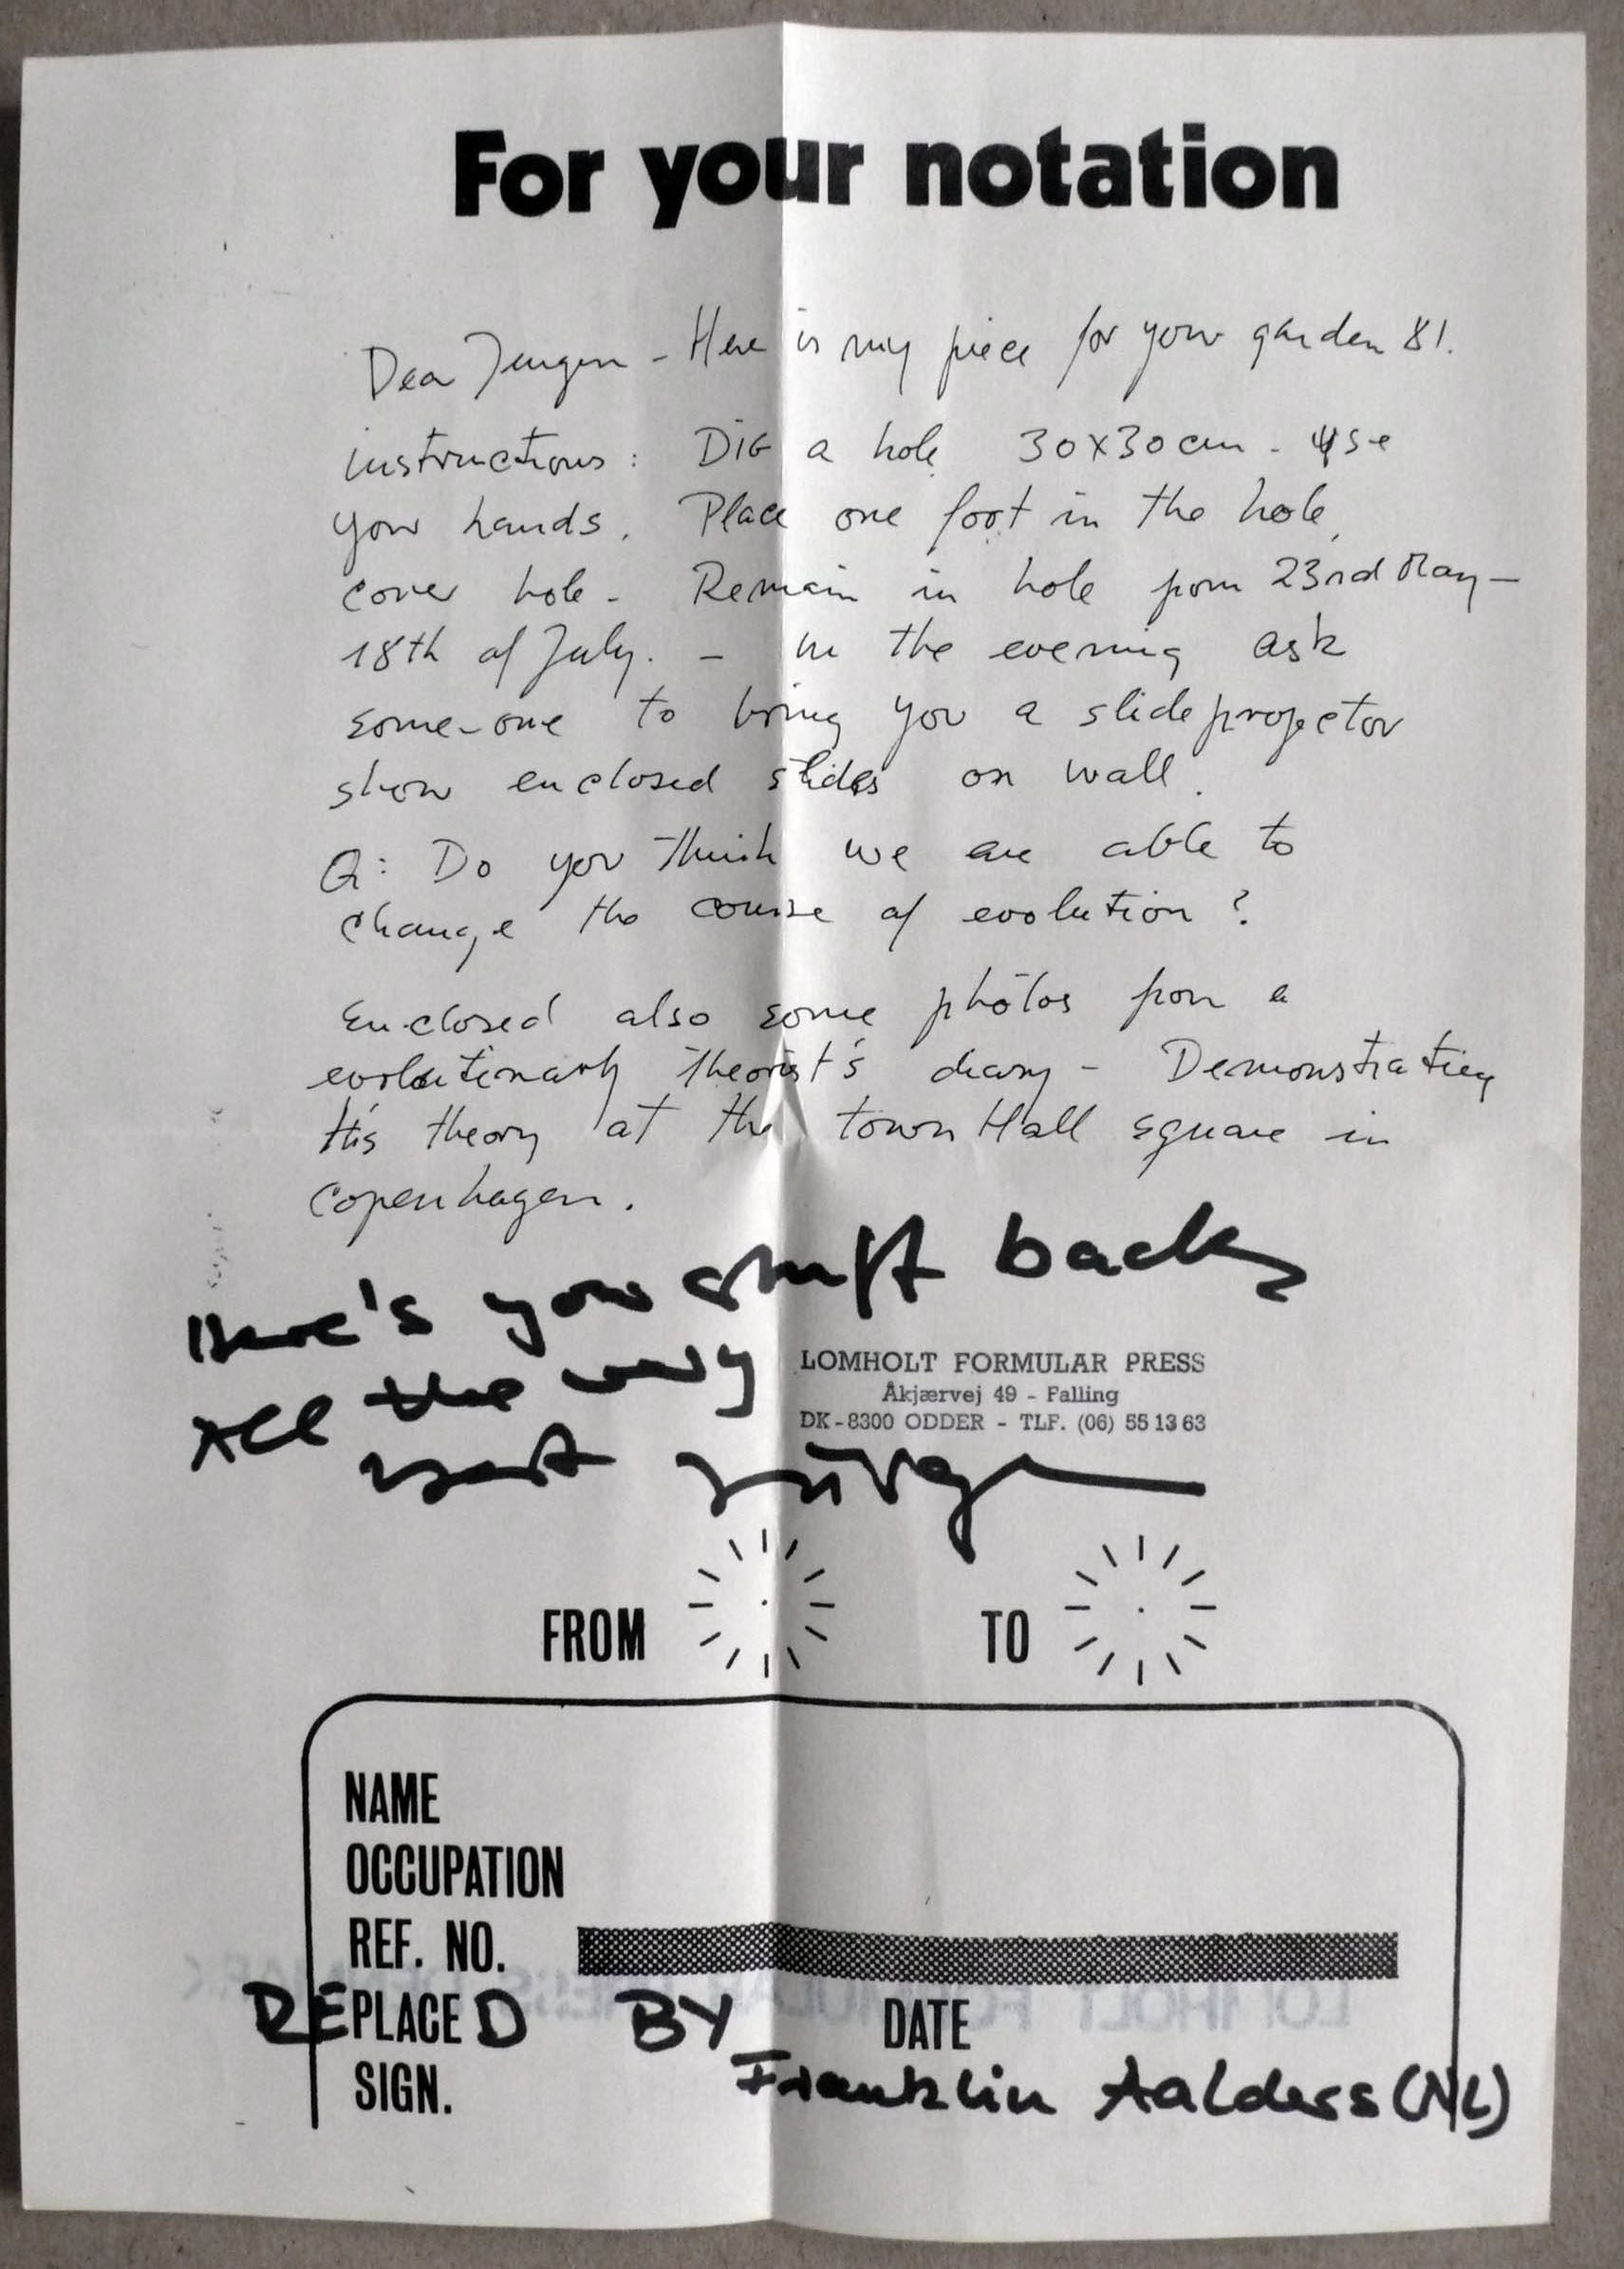 For your notation
Dear Jürgen - Here is my piece for your garden 81.
instructions: DIG a hole 30x30cm - use
your hands. Place one foot in the hole,
cover hole - Remain in hole from 23rd May -
18th of July. - in the evening ask
some-one to bring you a slideprojector
show enclosed slides on wall.
Q: Do you think we are able to
change the course of evolution?
Enclosed also some photos from a
evolutionary theorist's diary - Demonstrating
his theory at the town Hall square in
Copenhagen.
Here's your stuff back
All the very
LOMHOLT FORMULAR PRESS
Åkjærvej 49 - Falling
DK-8300 ODDER - TLF. (06) 55 13 63
best Jürgen
FROM TO
NAME
OCCUPATION
REF. NO.
REPLACED BY DATE
SIGN. Franklin Aalders (NL)